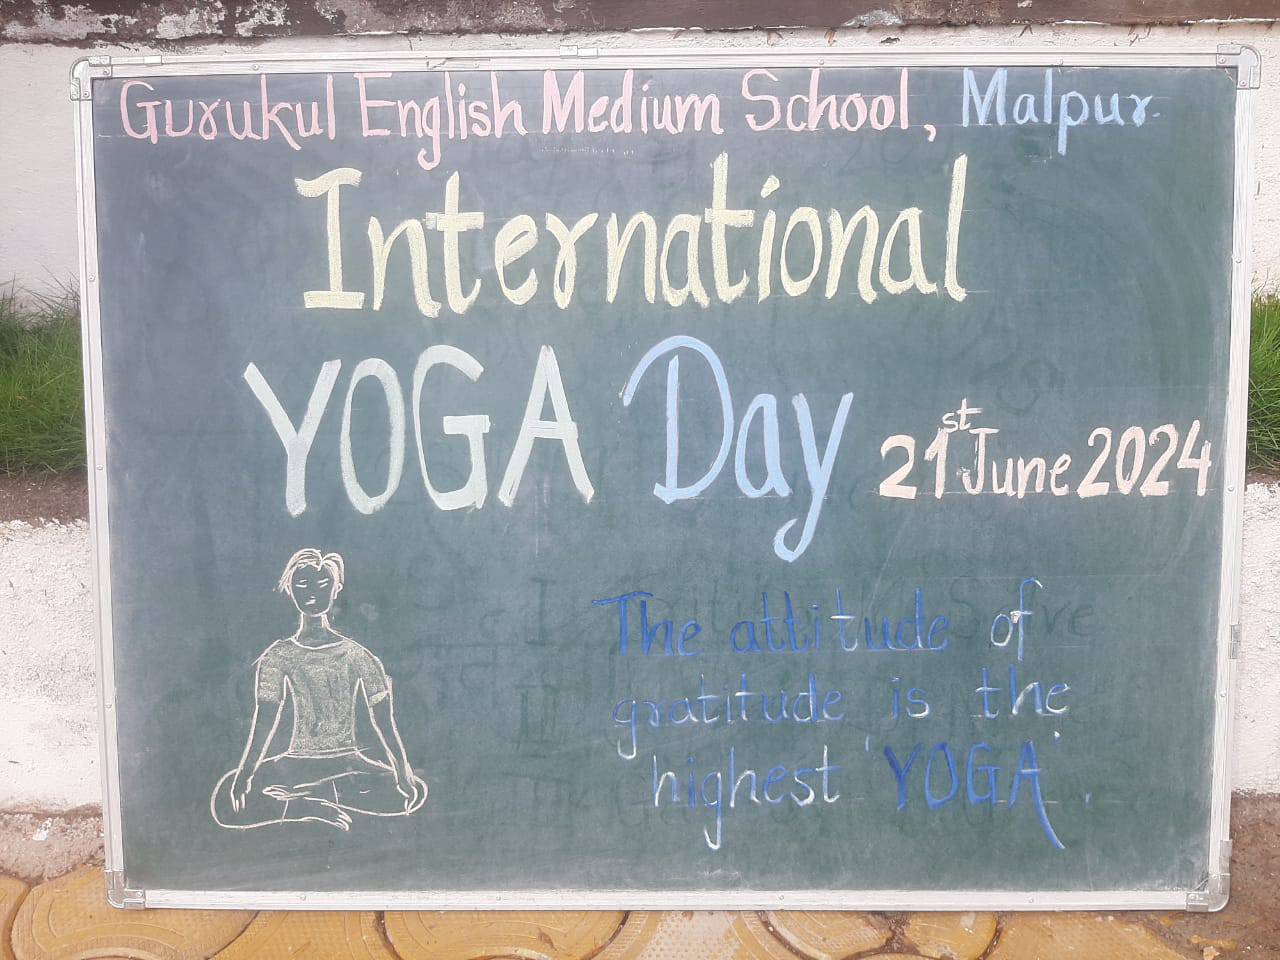 Gurukul English Medium School, Malpur.
International
YOGA Day 21st June 2024
The attitude of
gratitude is the
highest 'YOGA'.